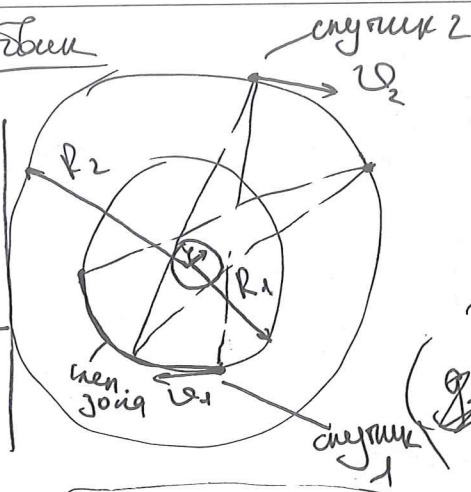 спутник 2
υ₂
R₂
R₁
слеп.
зона
υ₁
спутник
1